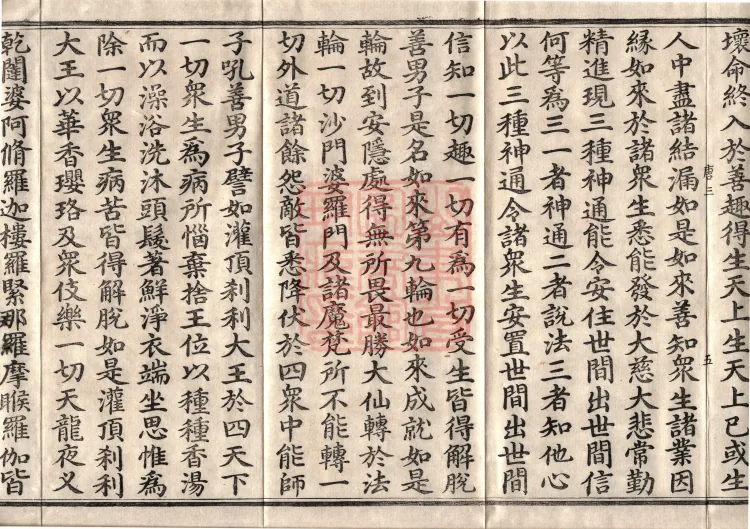 壞命終入於善趣得生天上生天上已或生
人中盡諸結漏如是如來善知衆生諸業因
緣如來於諸衆生悉能發於大慈大悲常勤
精進現三種神通能令安住世間出世間信
何等爲三一者神通二者說法三者知他心
以此三種神通令諸衆生安置世間出世間
信知一切趣一切有爲一切受生皆得解脫
善男子是名如來第九輪也如來成就如是
輪故到安隱處得無所畏最勝大仙轉於法
輪一切沙門婆羅門及諸魔梵所不能轉一
切外道諸餘怨敵皆悉降伏於四衆中能師
子吼善男子譬如灌頂刹利大王於四天下
一切衆生爲病所惱棄捨王位以種種香湯
而以澡浴洗沐頭髮著鮮淨衣端坐思惟爲
除一切衆生病苦皆得解脫如是灌頂刹利
大王以華香瓔珞及衆伎樂一切天龍夜叉
乾闥婆阿脩羅迦樓羅緊那羅摩睺羅伽皆
唐三
五